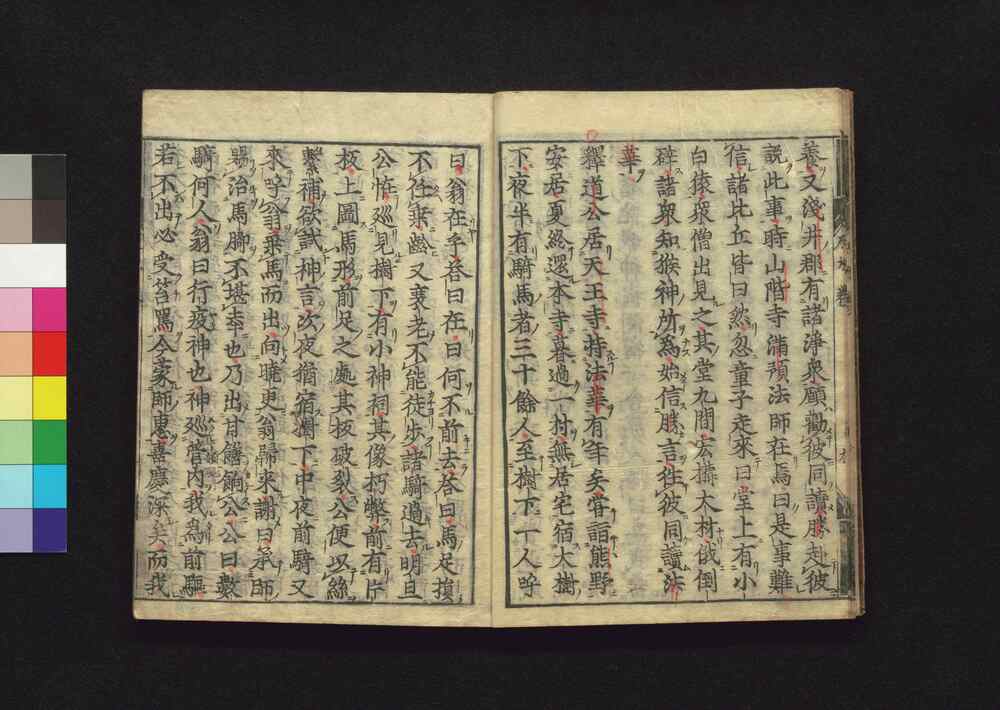 養又淺井郡有諸淨衆願勸彼同讀勝赴彼
說此事時山階寺滿預法師在焉曰是事難
信諸比丘皆曰然忽童子走來曰堂上有小
白猿衆僧出見之其堂九間宏構大材俄倒
碎諸衆知猴神所爲始信勝言往彼同讀法
華
釋道公居天王寺持法華有年矣嘗詣熊野
安居夏終還本寺暮過一村無居宅宿大樹
下夜半有騎馬者三十餘人至樹下一人呼
曰翁在乎荅曰在曰何不前去荅曰馬足損
不任乘齡又衰老不能徒步諸騎過去明旦
公恠廵見樹下有小神祠其像朽弊前有片
板上圖馬形前足之處其板破裂公便以絲
繫補欲試神言次夜猶宿樹下中夜前騎又
來呼翁翁乘馬而出向曉更翁歸來謝曰承師
賜治馬脚不堪幸也乃出甘饍餉公公曰數
騎何人翁曰行疫神也神廵管内我爲前驅
若不出必受笞罵今家師惠喜慶深矣而我